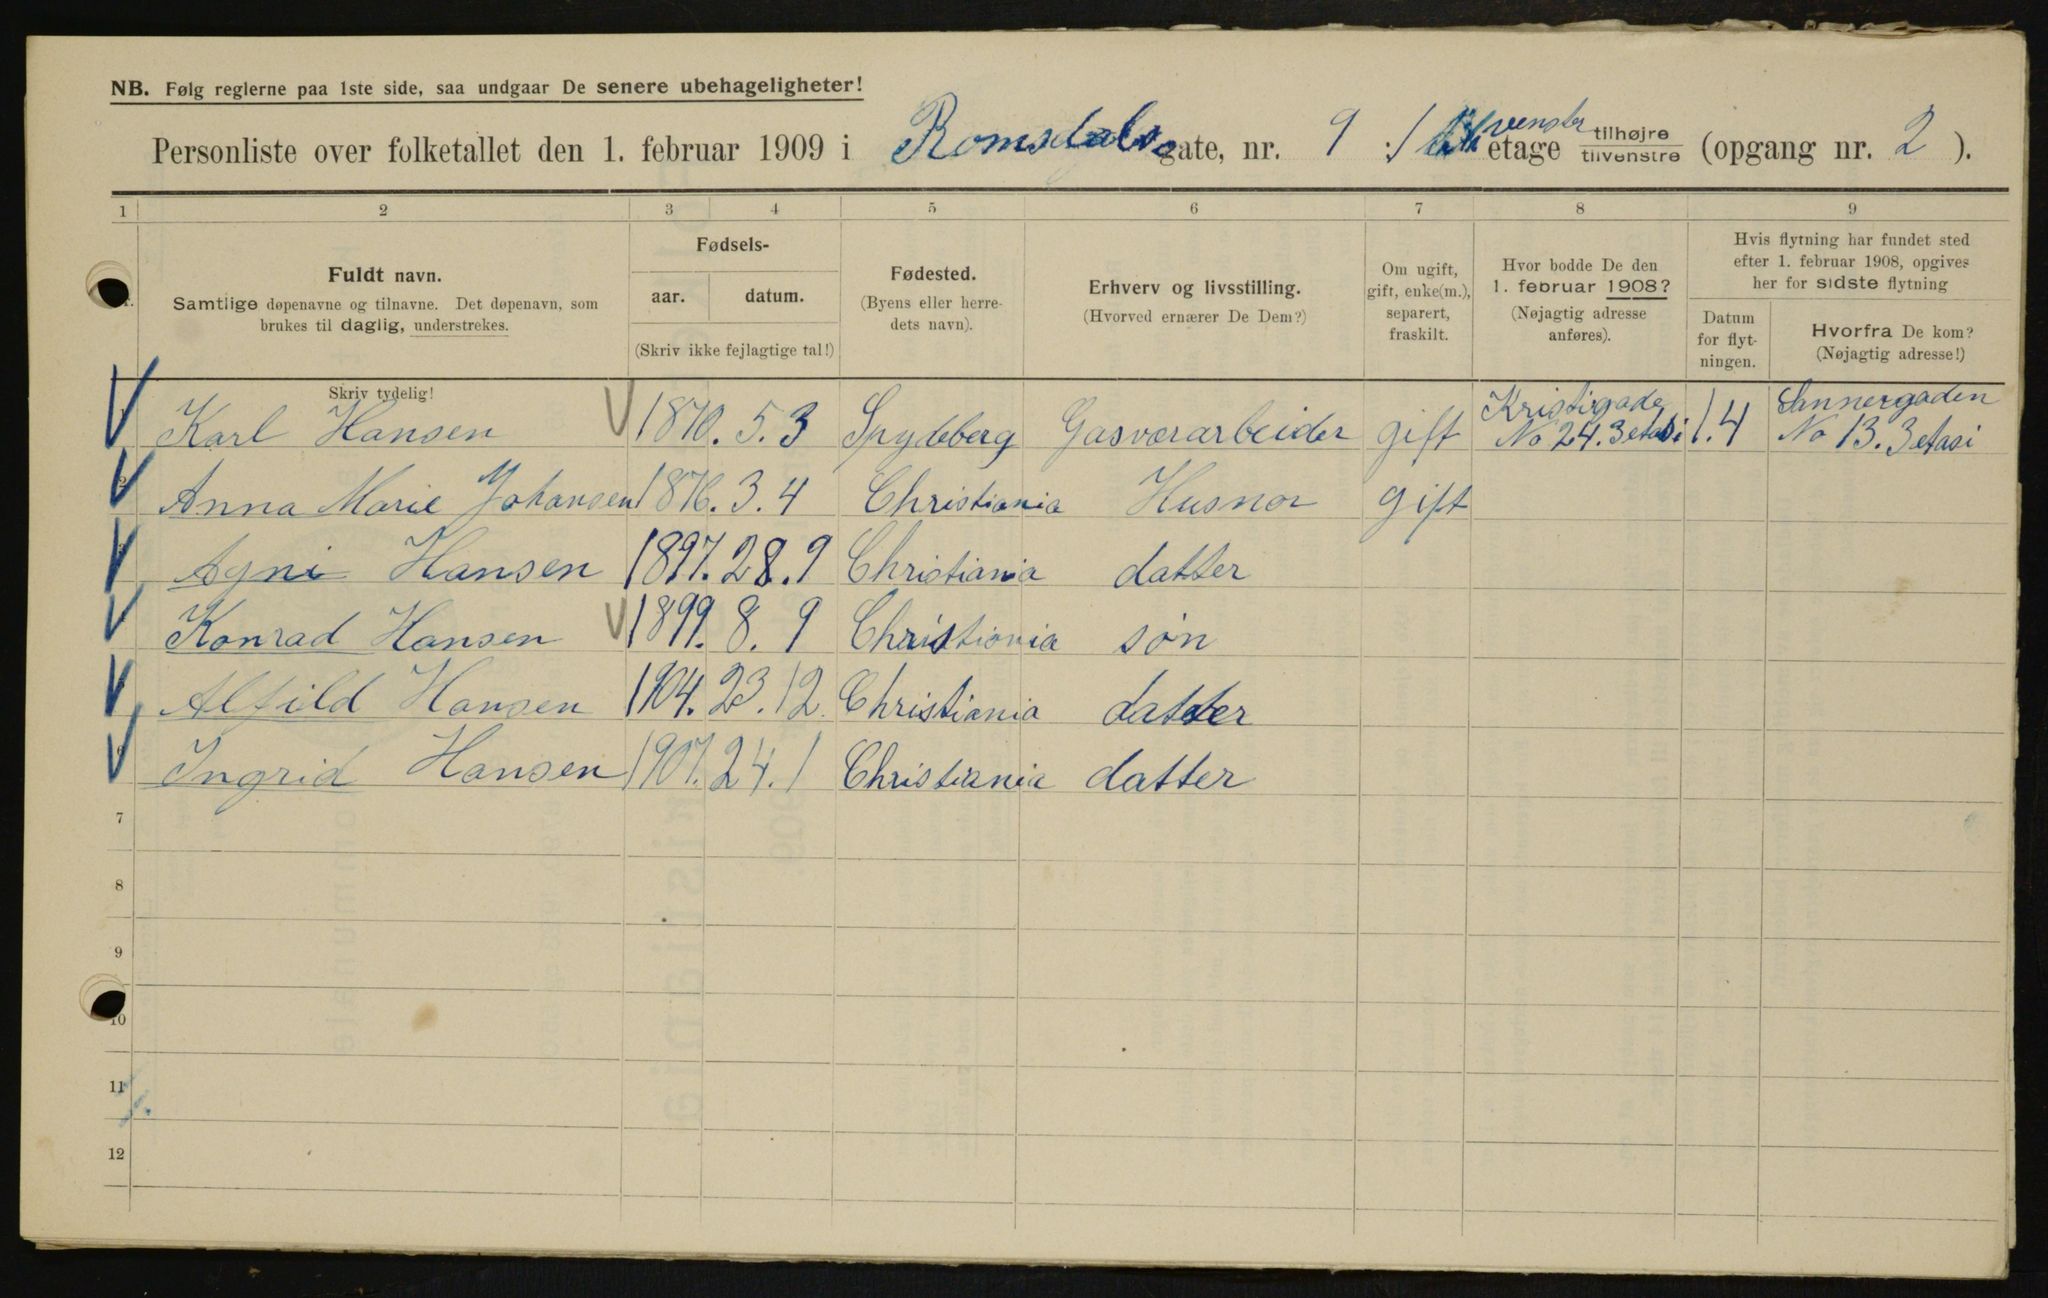 NB. Følg reglerne paa 1ste side, saa undgaar De senere ubehageligheter!
Personliste over folketallet den 1. februar 1909 i Romsdals gate, nr. 9 : venster etage tilhøjre tilvenstre (opgang nr. 2 ).
1 2 3 4 5 6 7 8 9
Fuldt navn.
Samtlige døpenavne og tilnavne. Det døpenavn, som
brukes til daglig, understrekes.
Skriv tydelig!
Fødsels-
aar. datum.
(Skriv ikke fejlagtige tal!)
Fødested.
(Byens eller herre-
dets navn).
Erhverv og livsstilling.
(Hvorved ernærer De Dem?)
Om ugift,
gift, enke(m.),
separert,
fraskilt.
Hvor bodde De den
1. februar 1908?
(Nøjagtig adresse
anføres).
Hvis flytning har fundet sted
efter 1. februar 1908, opgives
her for sidste flytning
Datum
for flyt-
ningen.
Hvorfra De kom?
(Nøjagtig adresse!)
Karl Hansen 1870. 5. 3 Spydeberg Gasværarbeider gift Kristigade No 24. 3 etasi 1. 4 Sannergaden No 13. 3 etasi
Anna Marie Johansen 1876. 3. 4 Christiania Husmor gift
Agni Hansen 1897. 28. 9 Christiania datter
Konrad Hansen 1899. 8. 9 Christiania søn
Alfild Hansen 1904. 23. 12. Christiania datter
Ingrid Hansen 1907. 24. 1 Christiania datter
7
8
9
10
11
12